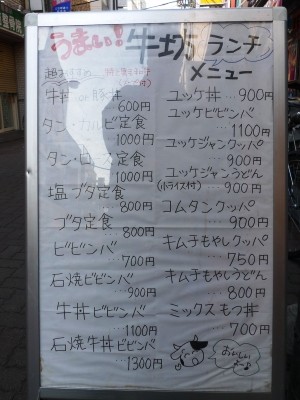 うまい! 牛坊 ランチ
メニュー
超おすすめ
牛丼 or 豚丼
600円
タン・カルビ定食
1000円
タン・ロース定食
1000円
塩ブタ定食
‥800円
ブタ定食
‥800円
ビビンバ
‥700円
石焼ビビンバ
‥900円
牛丼ビビンバ
‥1100円
石焼牛丼ビビンバ
‥1300円
ユッケ丼‥900円
ユッケビビンバ
‥1100円
ユッケジャンクッパ
‥900円
ユッケジャンうどん
(小ライス付)‥900円
コムタンクッパ
‥900円
キムチもやしクッパ
‥750円
キムチもやしうどん
‥800円
ミックスもつ丼
‥700円
おいしい
もー♪